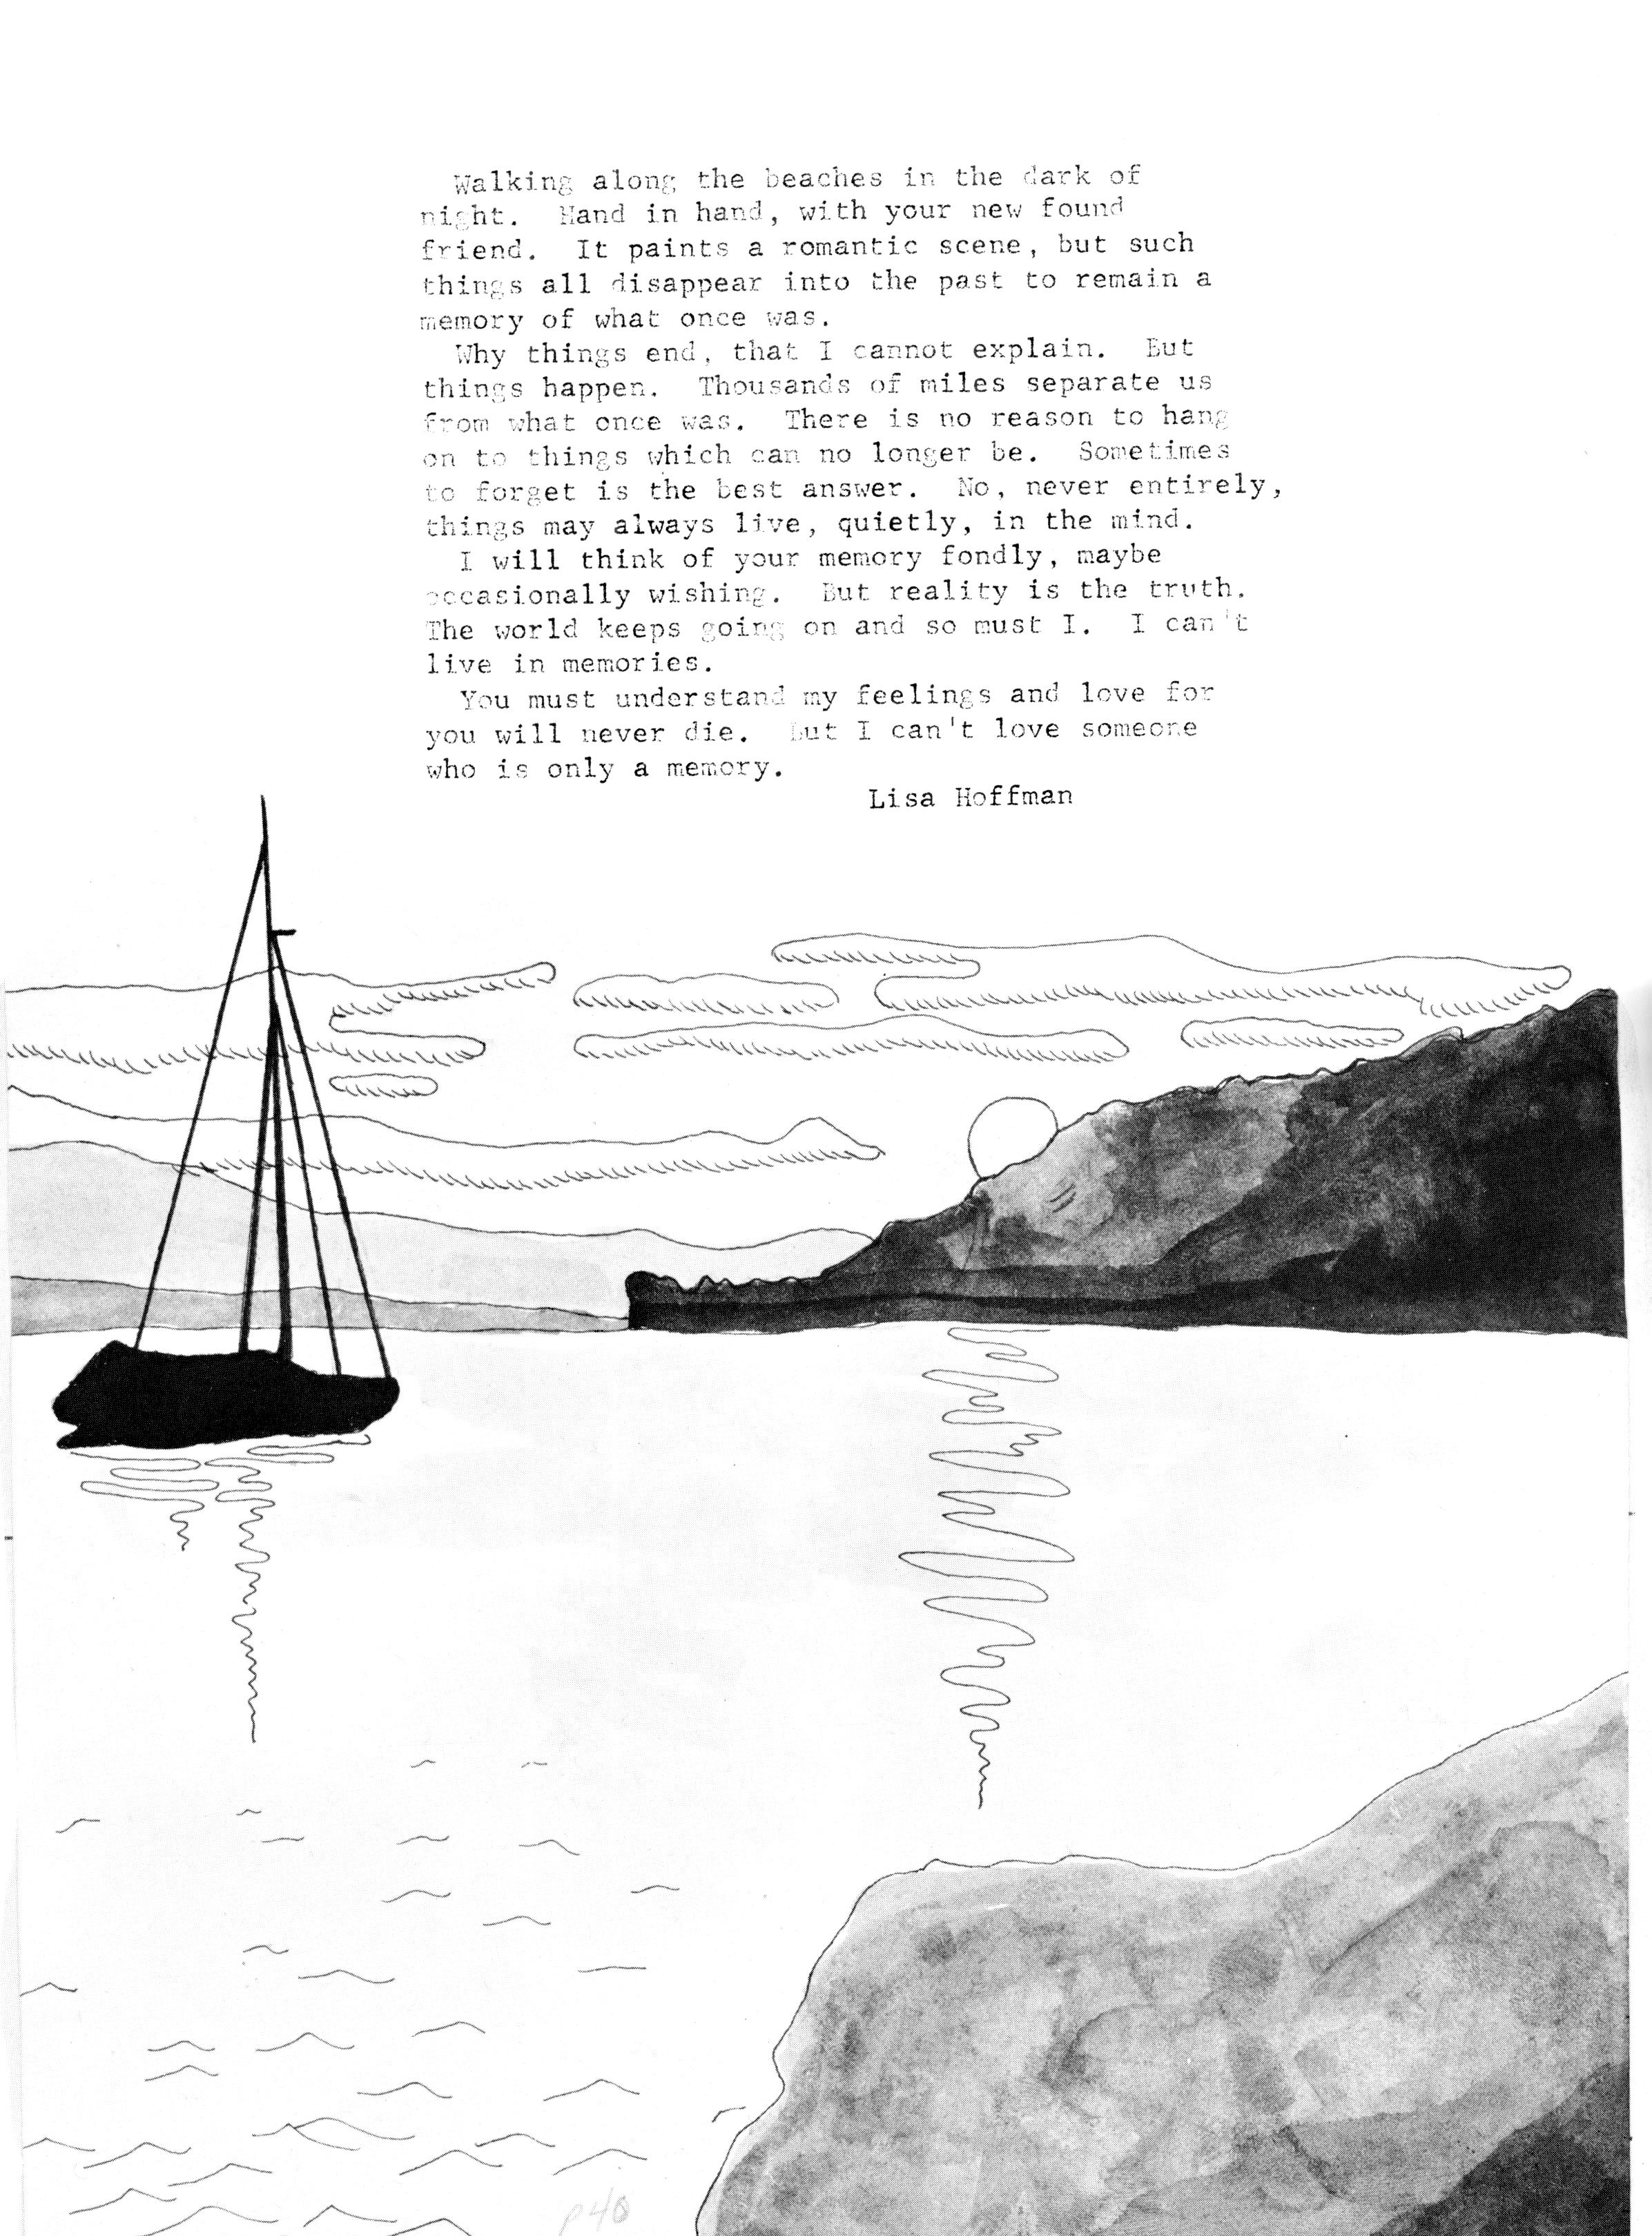 Walking along the beaches in the dark of
night.  Hand in hand, with your new found
friend.  It paints a romantic scene, but such
things all disappear into the past to remain a
memory of what once was.
Why things end, that I cannot explain.  But
things happen.  Thousands of miles separate us
from what once was.  There is no reason to hang
on to things which can no longer be.  Sometimes
to forget is the best answer.  No, never entirely,
things may always live, quietly, in the mind.
I will think of your memory fondly, maybe
occasionally wishing.  But reality is the truth.
The world keeps going on and so must I.  I can't
live in memories.
You must understand my feelings and love for
you will never die.  But I can't love someone
who is only a memory.
Lisa Hoffman
p40